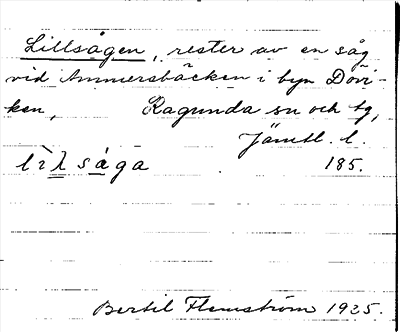 Lillsågen, rester av en såg
vid Ammersbäcken i byn Dövi-
ken, Ragunda sn och tg,
Jämtl. l.
lìλ sága 185.
Bertil Flemström 1925.